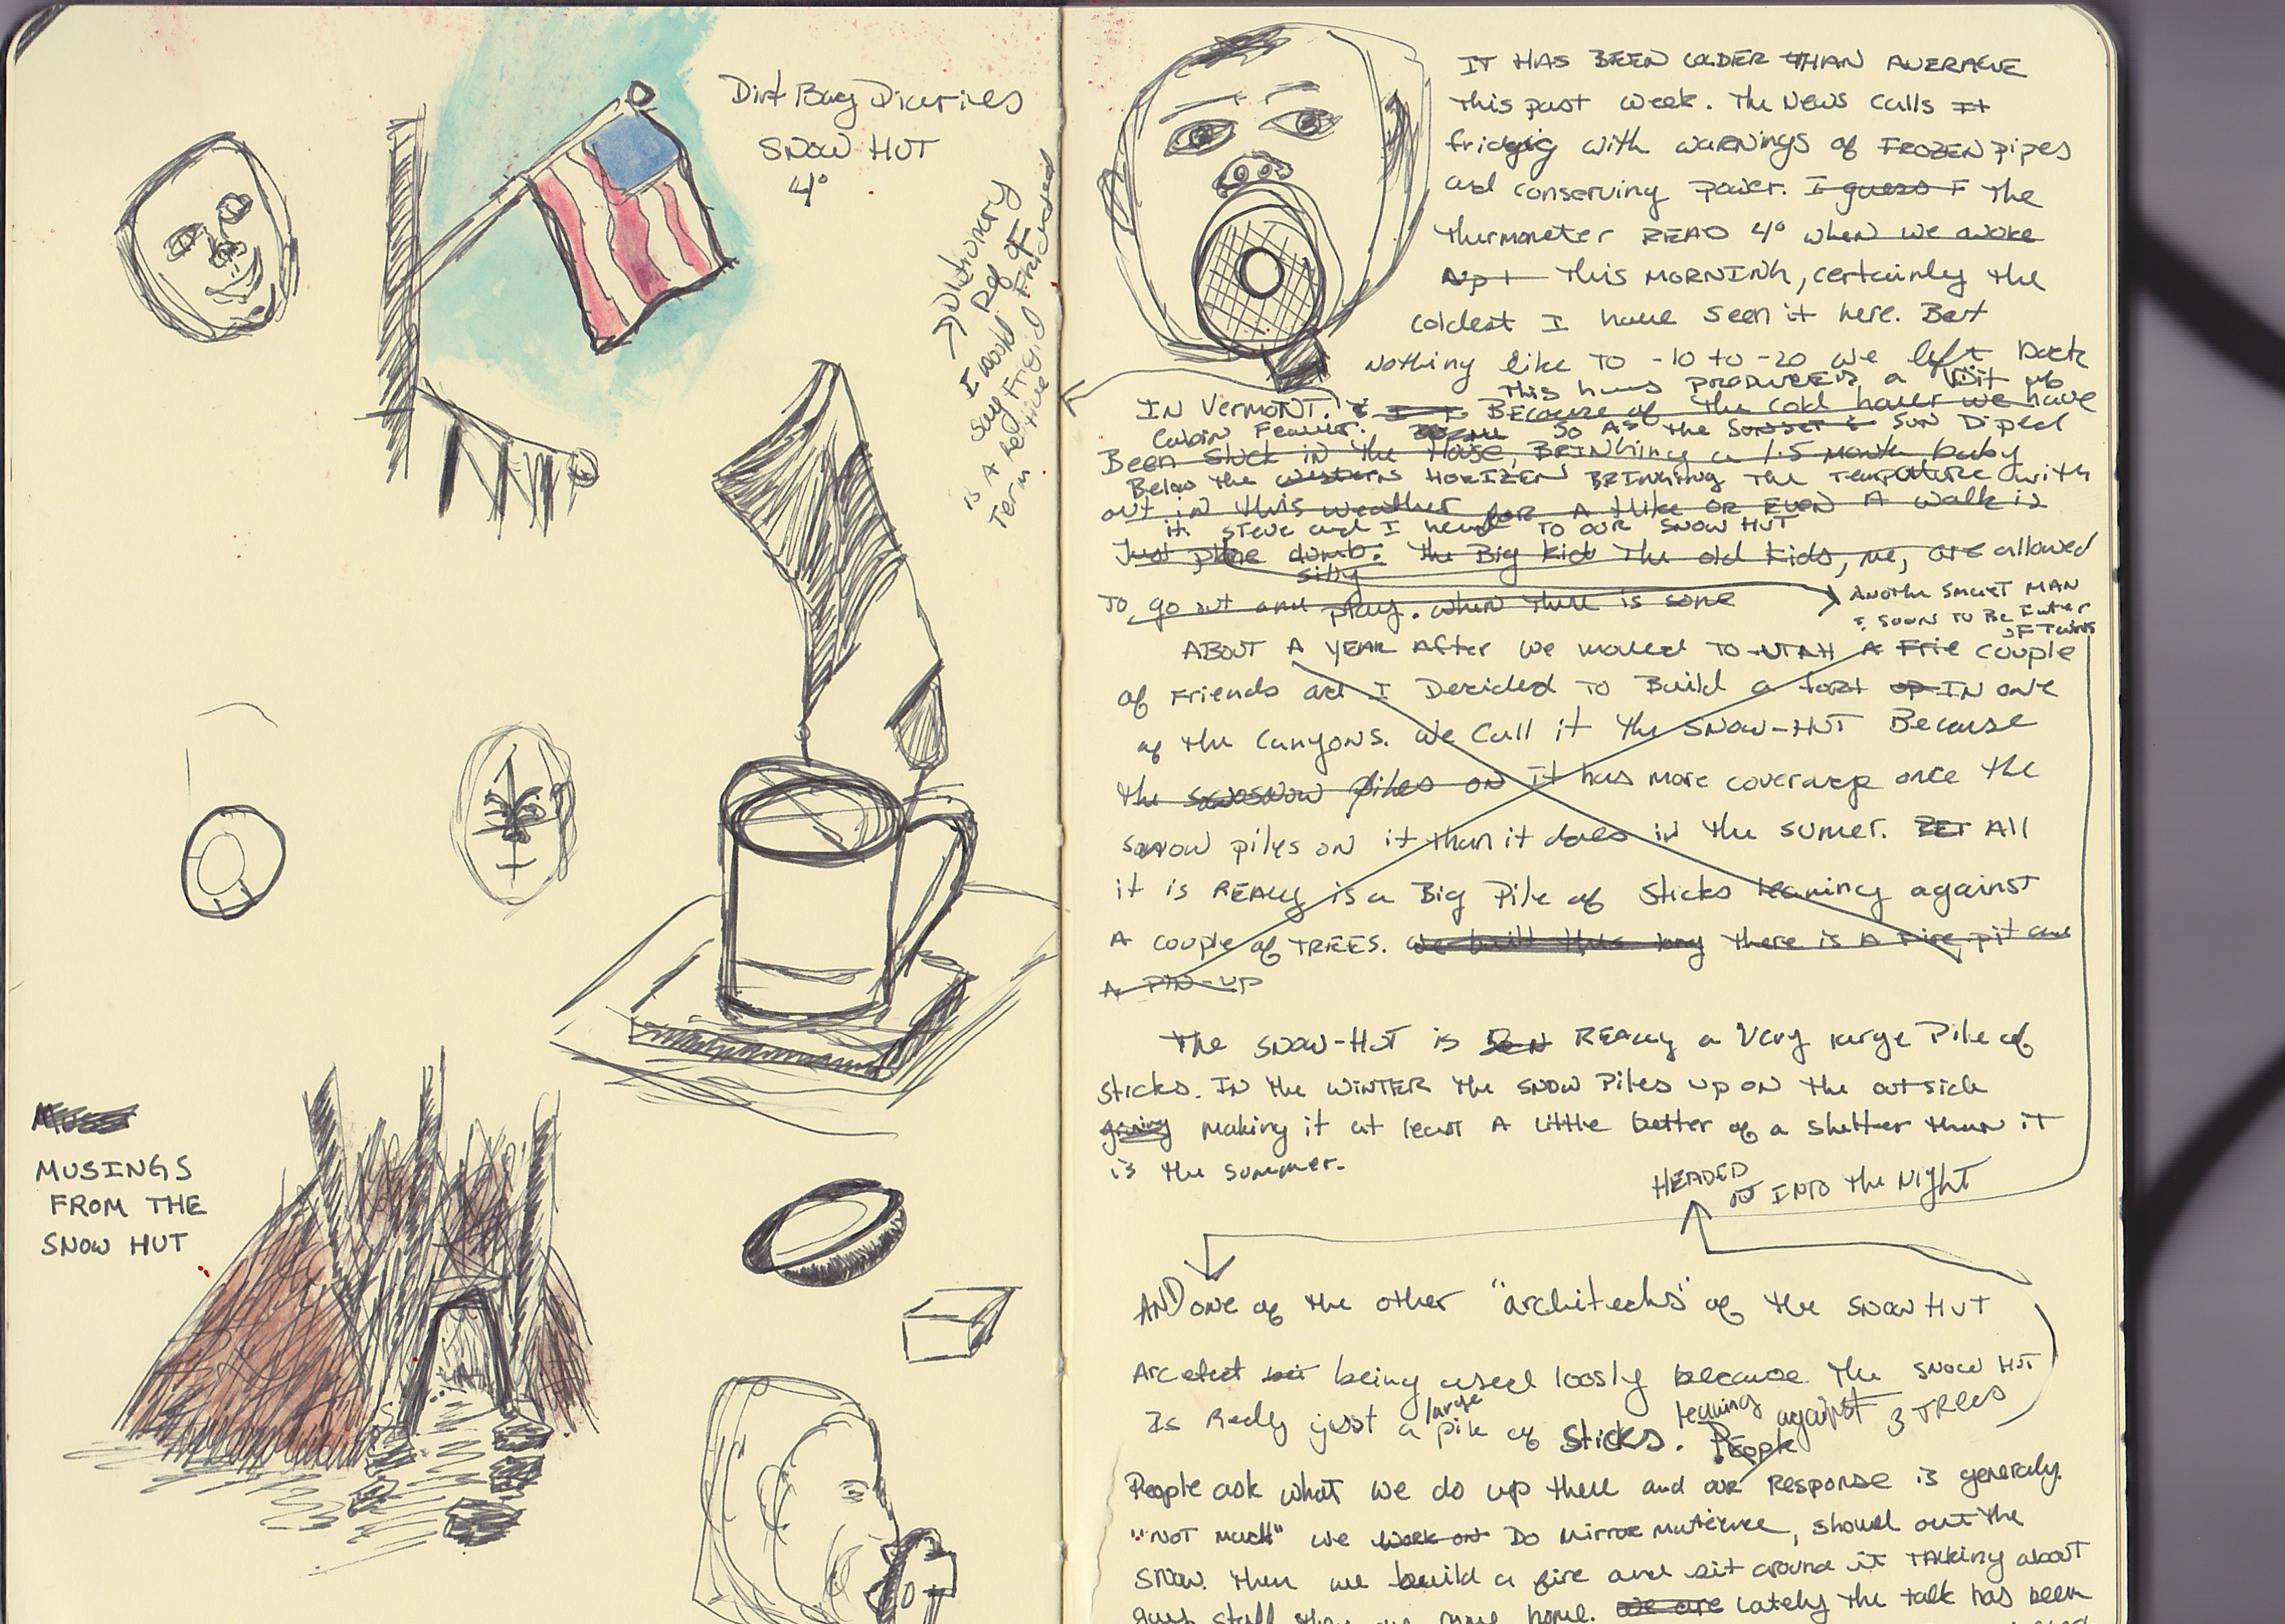 Dirt Bag Diaries
SNOW HUT
4°
Dictionary
Def of
Frigid
I would
say Frigid
is A Relative
Term
MUSINGS
FROM THE
SNOW HUT
IT HAS BEEN COLDER THAN AVERAGE
this past week. The News calls It
with warnings of FROZEN pipes
and conserving power. I guess F The
thermometer READ 4° when we awoke
this MORNING, certainly the
coldest I have seen it here. But
Nothing like TO -10 to -20 we left back
This has produced a bit of
IN VERMONT. Because of the cold house we have
Cabin Feaver. So AS the SUNSET SUN Diped
Been Stuck in the House, BRINGING a 1.5 month baby
Below the western HORIZEN BRINGING The Tempature with
out in this weather FOR A Hike OR EVEN A walk is
it. Steve and I head TO OUR SNOW HUT
Just plane dumb. the Big kid The old kids, me, are allowed
silly
TO go out and play. when there is some
ANOTHER SMART MAN
& SOON TO BE Father
OF Twins
ABOUT A YEAR After we moved TO UTAH A Frie couple
of Friends and I Decided TO Build a fort up IN one
of the Canyons. We Call it the SNOW-HUT Because
the snow piles on It has more coverage once the
snow piles on it than it does in the sumer. BET All
it is REALLY is a Big Pile of Sticks leaning against
A couple of TREES. We built this there is A Fire pit and
A PIN-UP
The SNOW-HUT is REALLY a Very large Pile of
sticks. IN the WINTER the SNOW Piles up on the outside
making it at least A little better of a shelter than IT
is the summer.
HEADED
INTO the Night
AND one of the other "architechs" of the SNOW HUT
Arcetect being used loosly because The SNOW HUT
Is Really just a large pile of Sticks. leaning against 3 TREES
People
People ask what we do up there and our response is generaly
"NOT much" we work on Do mirror, shovel out the
SNOW. Then we build a fire and sit around it TALKING about
stuff then we come home. We are Lately the talk has been